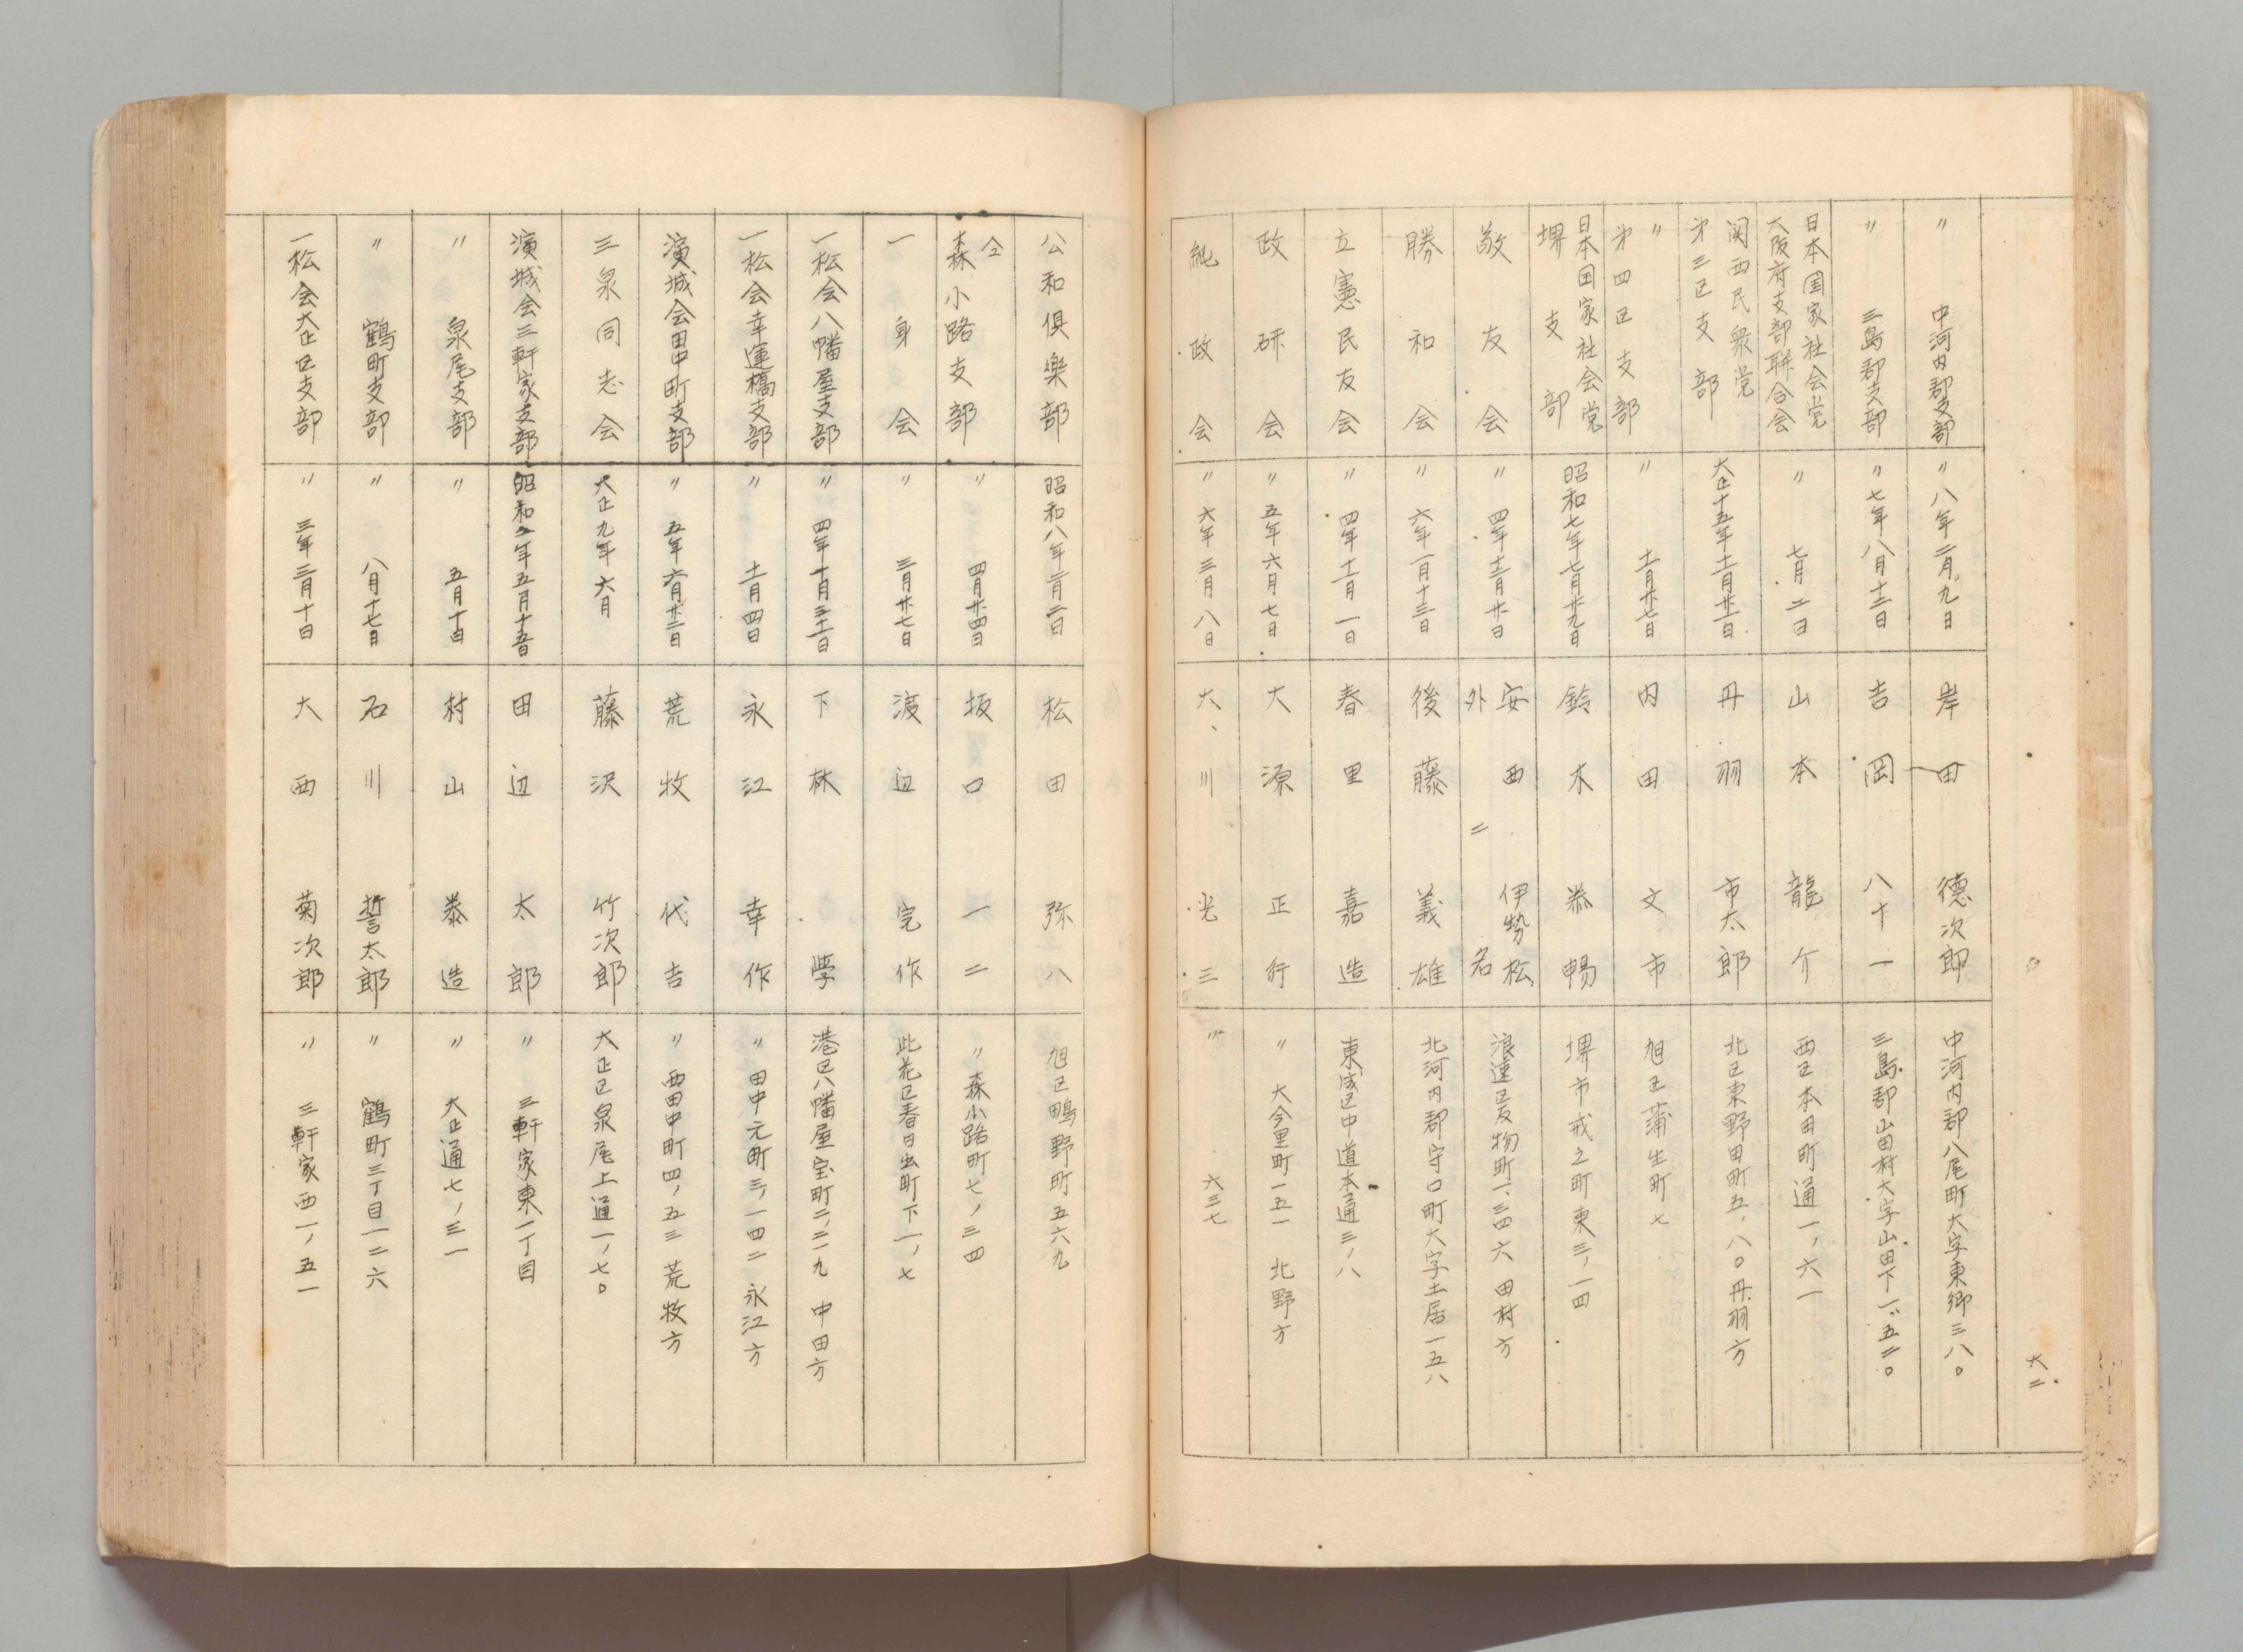 六二
〃 中河内郡支部 〃 八年二月九日 岸田 徳次郎 中河内郡八尾町大字東郷三八〇
〃 三島郡支部 〃 七年八月十二日 吉岡 八十一 三島郡山田村大字山田下一、五二〇
日本国家社会党
大阪府支部聯合会 〃 七月二日 山本 龍介 西区本田町通一ノ六一
関西民衆党
第三区支部 大正十五年十二月廿二日 丹羽 市太郎 北区東野田町五ノ八〇丹羽方
〃
第四区支部 〃 十一月廿七日 内田 文市 旭区蒲生町七
日本国家社会党
堺支部 昭和七年七月廿九日 鈴木 恭暢 堺市戎之町東三ノ一四
敬友会 〃 四年十二月廿日 安西 伊勢松
外 二名 浪速区反物町一、三四六 田村方
勝和会 〃 六年一月十三日 後藤 義雄 北河内郡守口町大字土居一五八
立憲民友会 〃 四年十一月一日 春里 嘉造 東成区中道本通三ノ八
政研会 〃 五年六月七日 大源 正行 〃 大今里町一五一 北野方
純政会 〃 六年三月八日 大川 光三 〃 六三七
公和倶楽部 昭和八年三月二日 松田 弥八 旭区鴫野町五六九
仝
森小路支部 〃 四月廿四日 坂口 一二 〃 森小路町七ノ三四
一身会 〃 三月廿七日 渡辺 完作 此花区春日出町下一ノ七
一松会八幡屋支部 〃 四年十月三十一日 下林 学 港区八幡屋宝町二ノ二一九 中田方
一松会幸運橋支部 〃 十一月四日 永江 幸作 〃 田中元町三ノ一四二 永江方
濱城会田中町支部 〃 五年六月廿二日 荒牧 代吉 〃 西田中町四ノ五三 荒牧方
三泉同志会 大正九年六月 藤沢 竹次郎 大正区泉尾上通一ノ七〇
濱城会三軒家支部 昭和二年五月十五日 田辺 太郎 〃 三軒家東一丁目
〃 泉尾支部 〃 五月十日 村山 泰造 〃 大正通七ノ三一
〃 鶴町支部 〃 八月十七日 石川 誓太郎 〃 鶴町三丁目一二六
一松会大正区支部 〃 三年三月十日 大西 菊次郎 〃 三軒家西一ノ五一